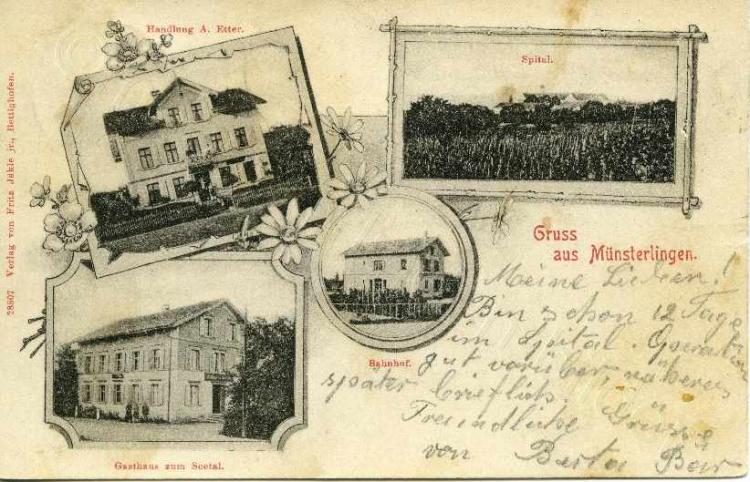 Handlung A. Etter.
Spital.
28807 Verlag von Fritz Jäkle jr., Bottighofen.
Gruss
aus Münsterlingen.
Bahnhof.
Gasthaus zum Seetal.
Meine Lieben!
Bin schon 12 Tage
im Spital. Operation
gut vorüber, näheres
später brieflich.
Freundliche Grüsse
von Berta